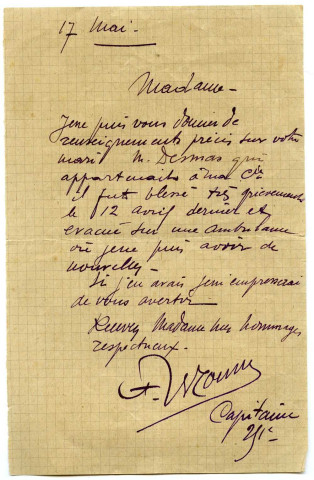 17 Mai.
Madame -
Je ne puis vous donner de
renseignements précis sur votre
mari M. Desmas qui
appartenait à ma Cie
il fut blessé très grièvement
le 12 avril dernier et
évacué sur une ambulance
où je ne puis avoir de
nouvelles -
Si j'en avais je m'empresserai
de vous avertir
Recevez Madame mes hommages
respectueux.
Capitaine